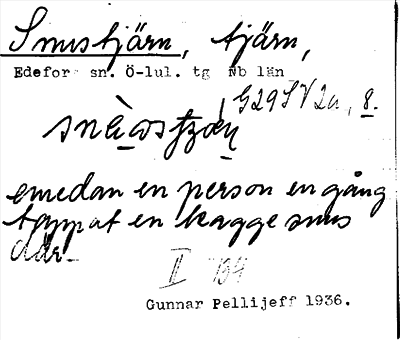 Snustjärn, tjärn,
Edefors sn. Ö-lul. tg Nb län
G29SV2a, 8.
emedan en person en gång
tappat en kagge snus
där.
II
Gunnar Pellijeff 1936.